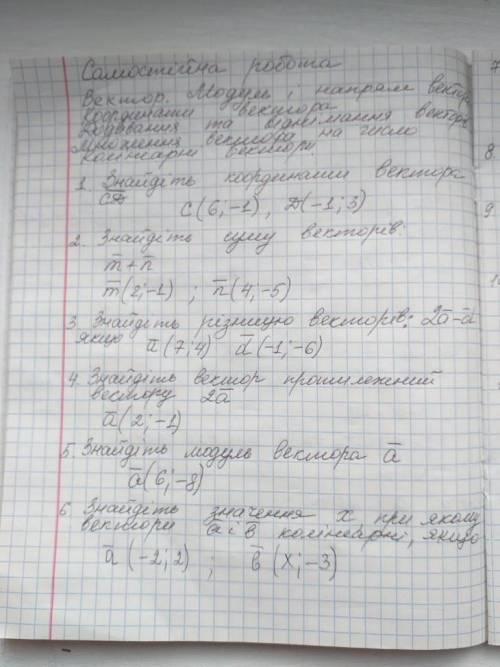 Самостійна робота
Вектор. Модуль і напрям вектора
Координати вектора
Додавання та віднімання векторів
Множення вектора на число
Колінеарні вектори.
1. Знайдіть координати вектора
CD̅ C(6;-1), D(-1;3)
2. Знайдіть суму векторів:
m̅+n̅
m̅(2;-1) ; n̅(4;-5)
3. Знайдіть різницю векторів: 2a̅-d̅
якщо a̅(7;4) d̅(-1;-6)
4. Знайдіть вектор протилежний
вектору 2a̅
a̅(2;-1)
5. Знайдіть модуль вектора a̅
a̅(6;-8)
6. Знайдіть значення x, при якому
вектори a̅ і b̅ колінеарні, якщо
a̅(-2;2) ; b̅(x;-3)
7
8.
9